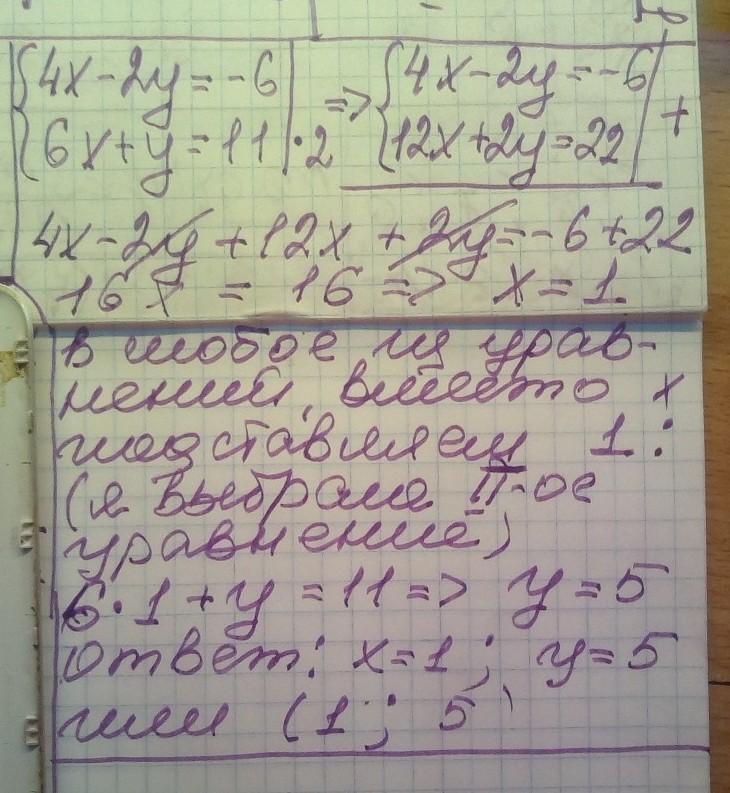 {4x-2y=-6 | => {4x-2y=-6 | +
{6x+y=11 |·2 {12x+2y=22 |
4x-2y+12x+2y=-6+22
16x = 16 => x=1
в любое из урав-
нений, вместо x
подставляем 1:
(я выбрала II-ое
уравнение)
6·1+y=11=> y=5
Ответ: x=1; y=5
или (1; 5)